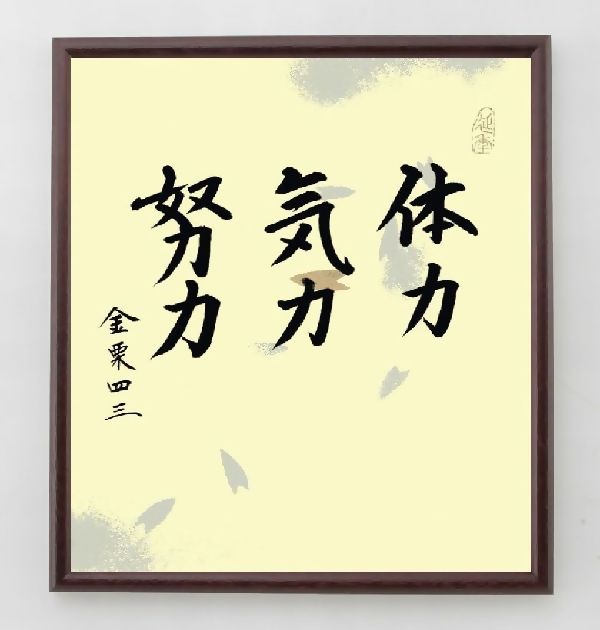 体力
気力
努力
金栗四三